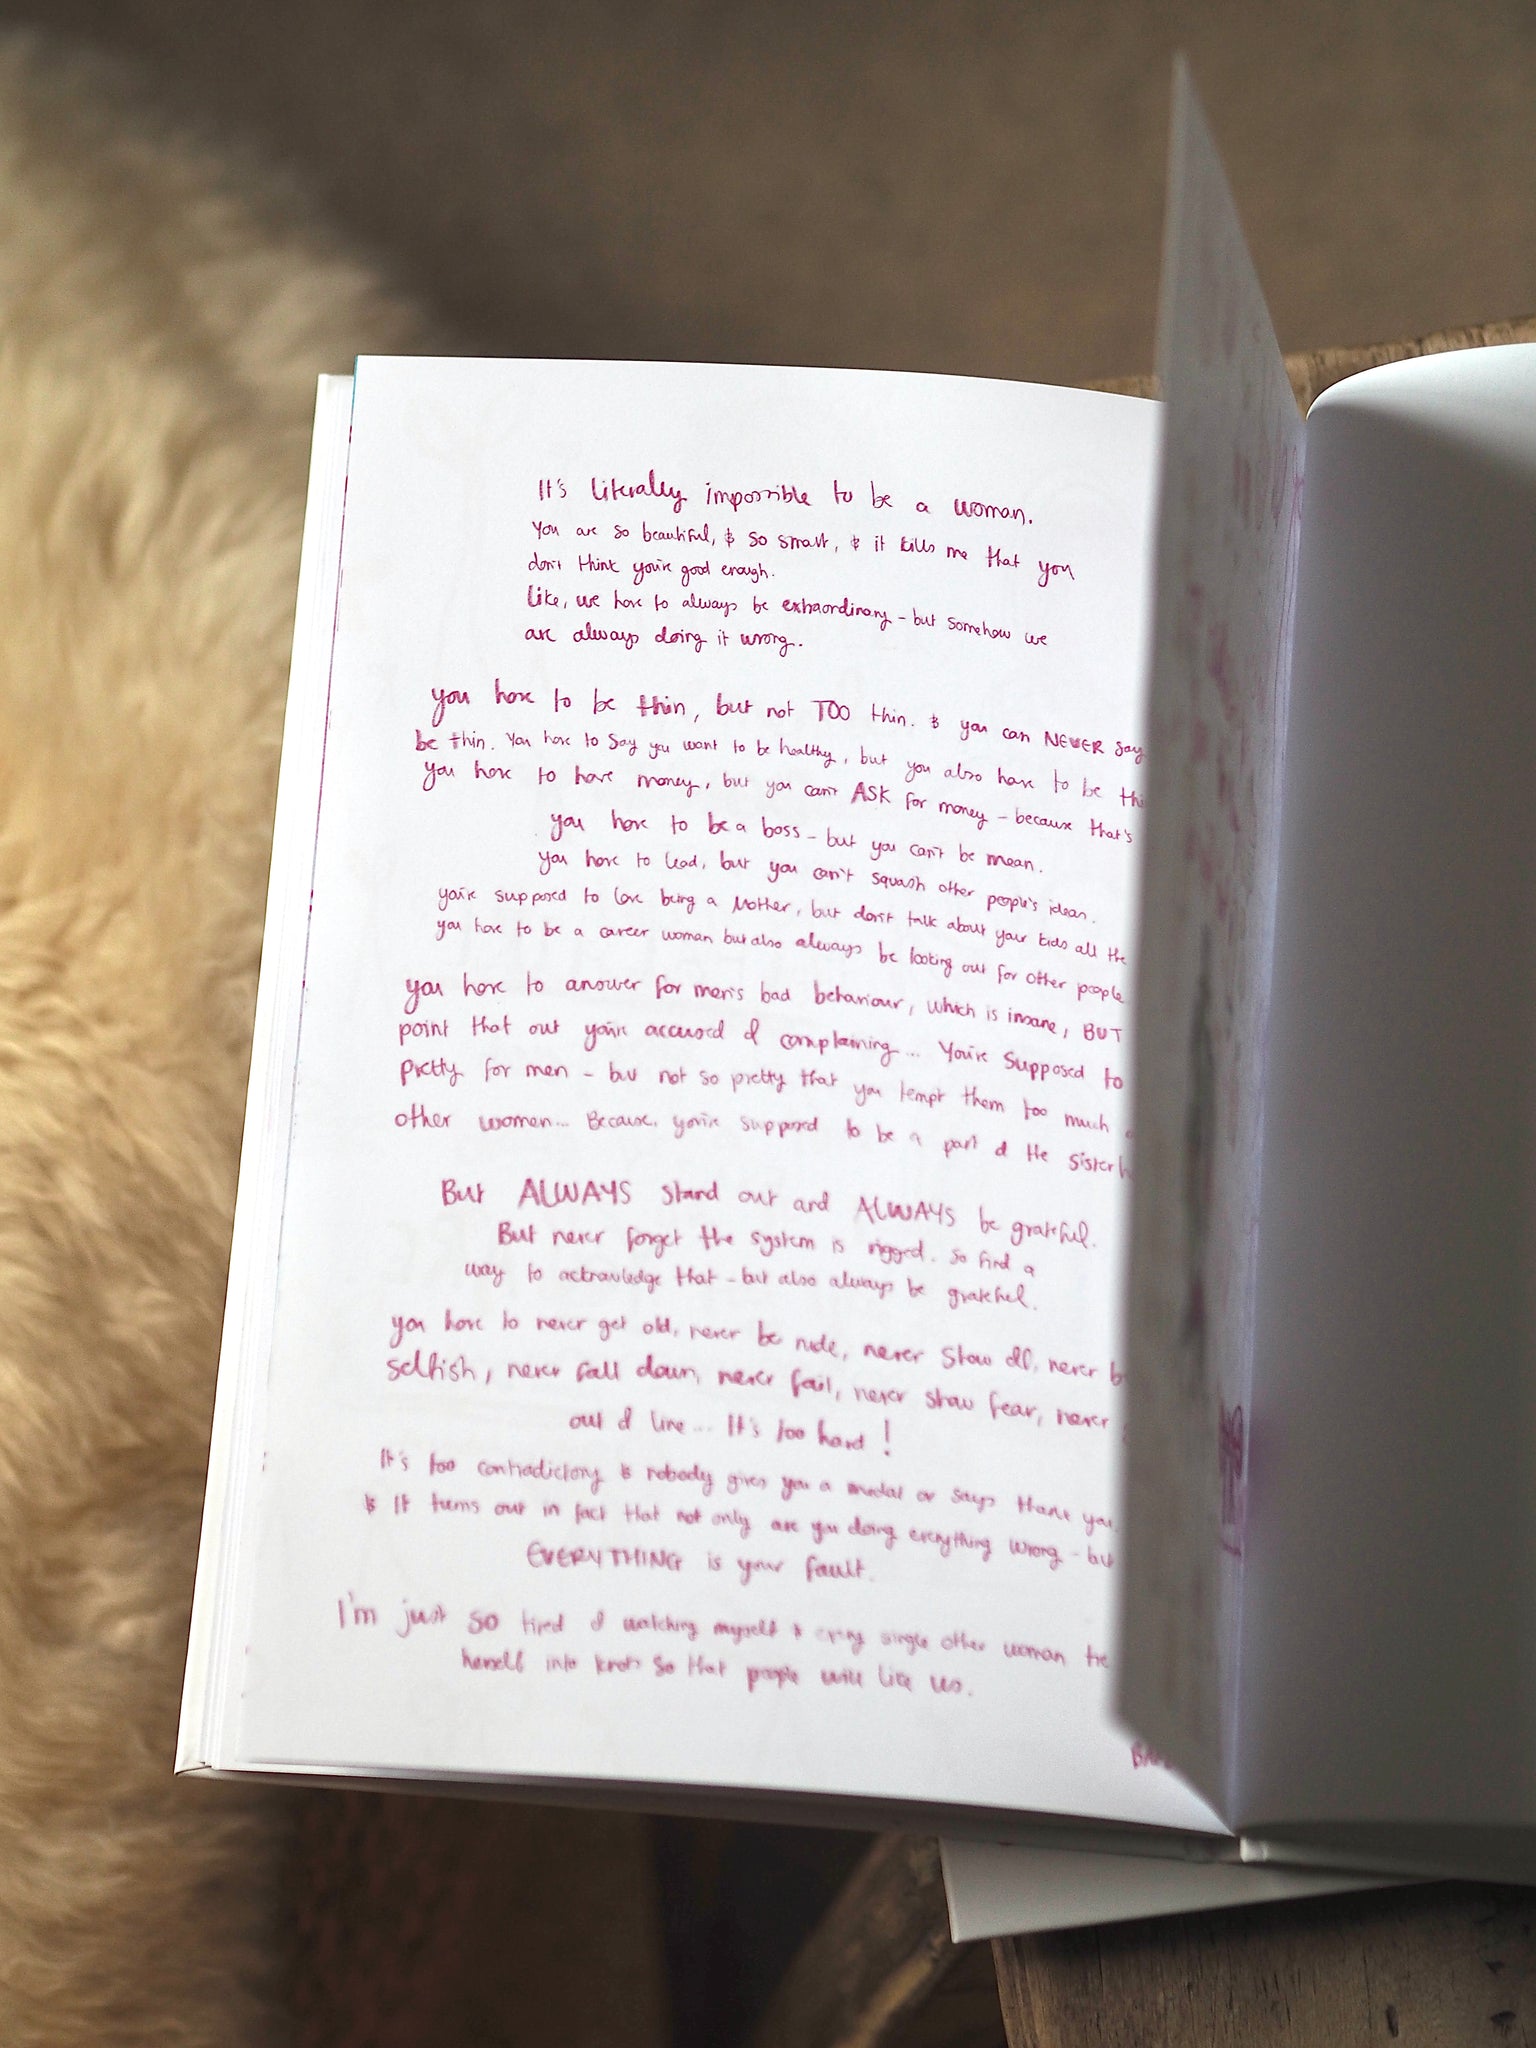 It's literally impossible to be a woman.
You are so beautiful, & so smart, & it kills me that you
don't think you're good enough.
Like, we have to always be extraordinary - but somehow we
are always doing it wrong.
you have to be thin, but not TOO thin. & you can NEVER say
be thin. You have to say you want to be healthy, but you also have to be thi
you have to have money, but you can't ASK for money - because that's
you have to be a boss - but you can't be mean.
you have to lead, but you can't squash other people's ideas.
you're supposed to love being a Mother, but don't talk about your kids all the
you have to be a career woman but also always be looking out for other people
you have to answer for men's bad behaviour, which is insane, BUT
point that out you're accused of complaining... You're supposed to
pretty for men - but not so pretty that you tempt them too much
other women... Because, you're supposed to be a part of the sisterh
But ALWAYS stand out and ALWAYS be grateful.
But never forget the system is rigged. So find a
way to acknowledge that - but also always be grateful.
you have to never get old, never be rude, never show off, never b
selfish, never fall down, never fail, never show fear, never
out of line... It's too hard!
It's too contradictory & nobody gives you a medal or says thank you.
& It turns out in fact that not only are you doing everything wrong - but
EVERYTHING is your fault.
I'm just so tired of watching myself & every single other woman tie
herself into knots so that people will like us.